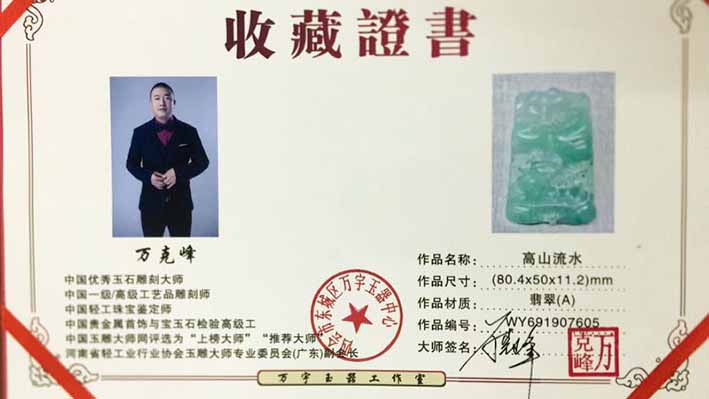 收藏證書
万克峰
中国优秀玉石雕刻大师
中国一级/高级工艺品雕刻师
中国轻工珠宝鉴定师
中国贵金属首饰与宝玉石检验高级工
中国玉雕大师网评选为“上榜大师”“推荐大师”
河南省轻工业行业协会玉雕大师专业委员会(广东)副会长
四会市东城区万字玉器中心
作品名称： 高山流水
作品尺寸： (80.4x50x11.2)mm
作品材质： 翡翠(A)
作品编号： WY691907605
大师签名：
万克峰
万字玉器工作室